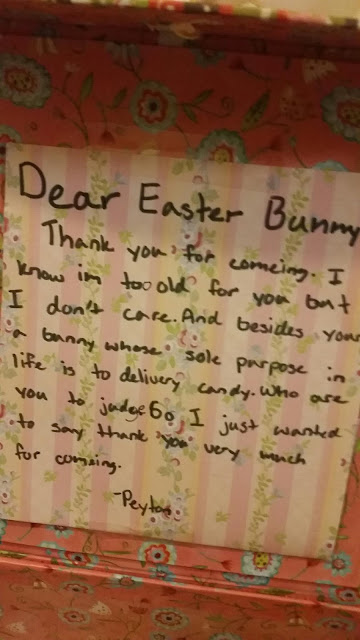 Dear Easter Bunny
Thank you for comeing. I
know im too old for you but
I don't care. And besides your
a bunny whose sole purpose in
life is to delivery candy. Who are
you to judge? So I just wanted
to say thank you very much
for comeing.
-Peyton